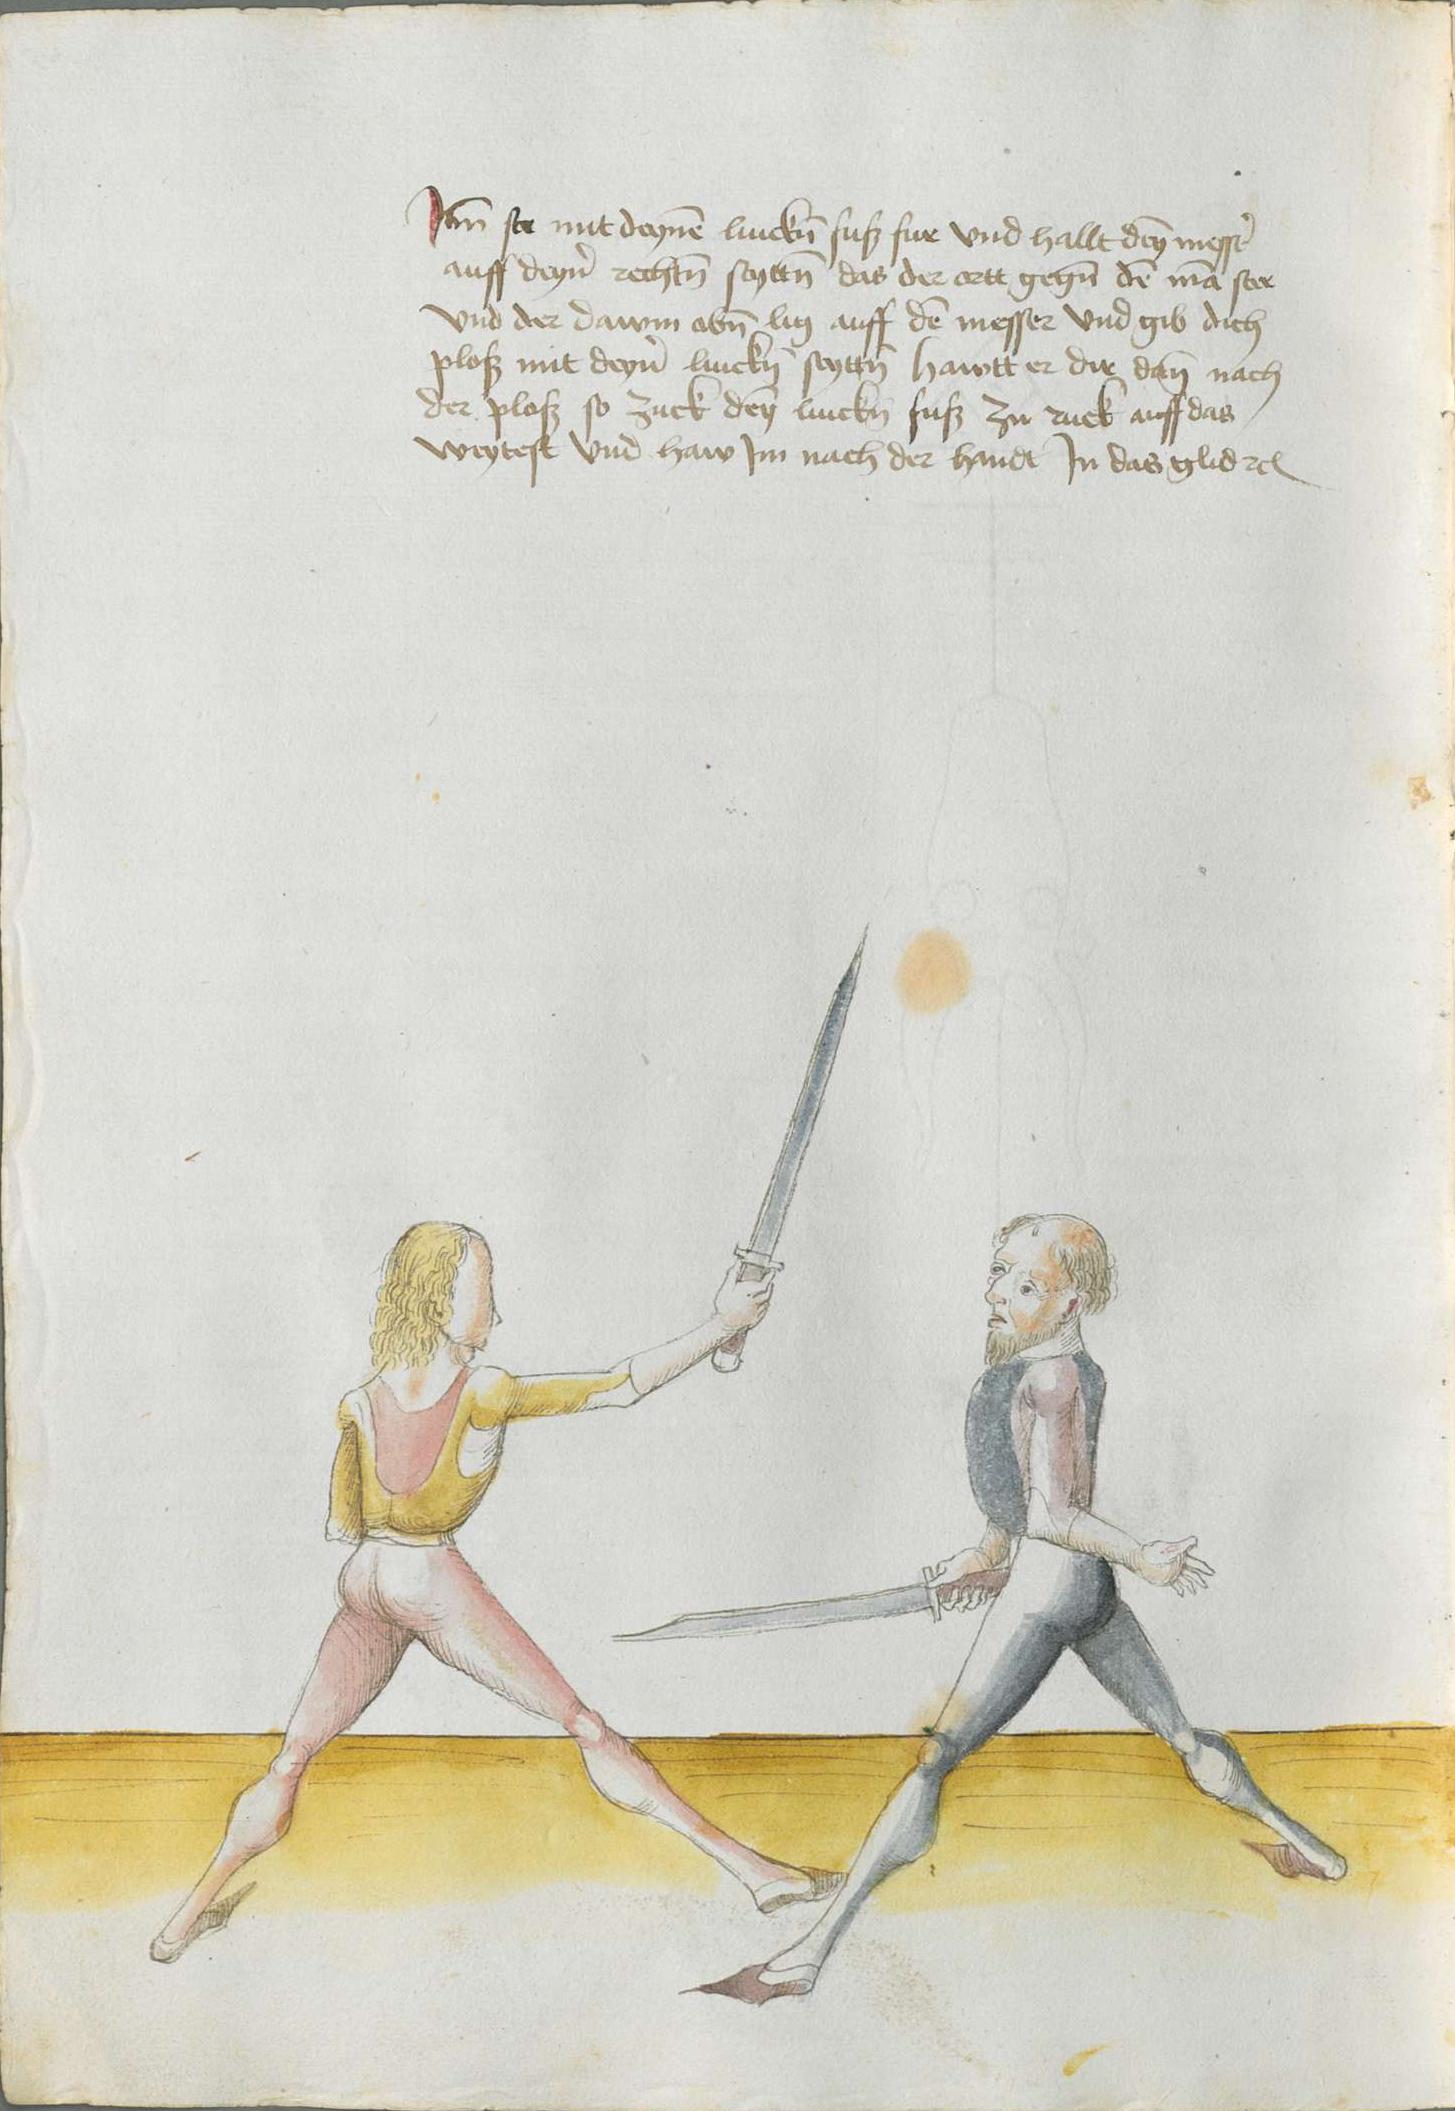 Itm̄ ste mit deynē linckñ fuß fur vnd hallt deȳ messr̃
auff deyr̃ rechtñ seyttñ das der ortt gegñ dē mā stee
vnd der dawm obñ lig auff dē messer vnd gib dich
ploß mit deyr̃ linckñ seyttñ hawtt er dir dañ nach
der ploß so zuck deȳ linckñ fuß zu ruck auff das
weytest vnd haw Im nach der handt In das glid ꝛc